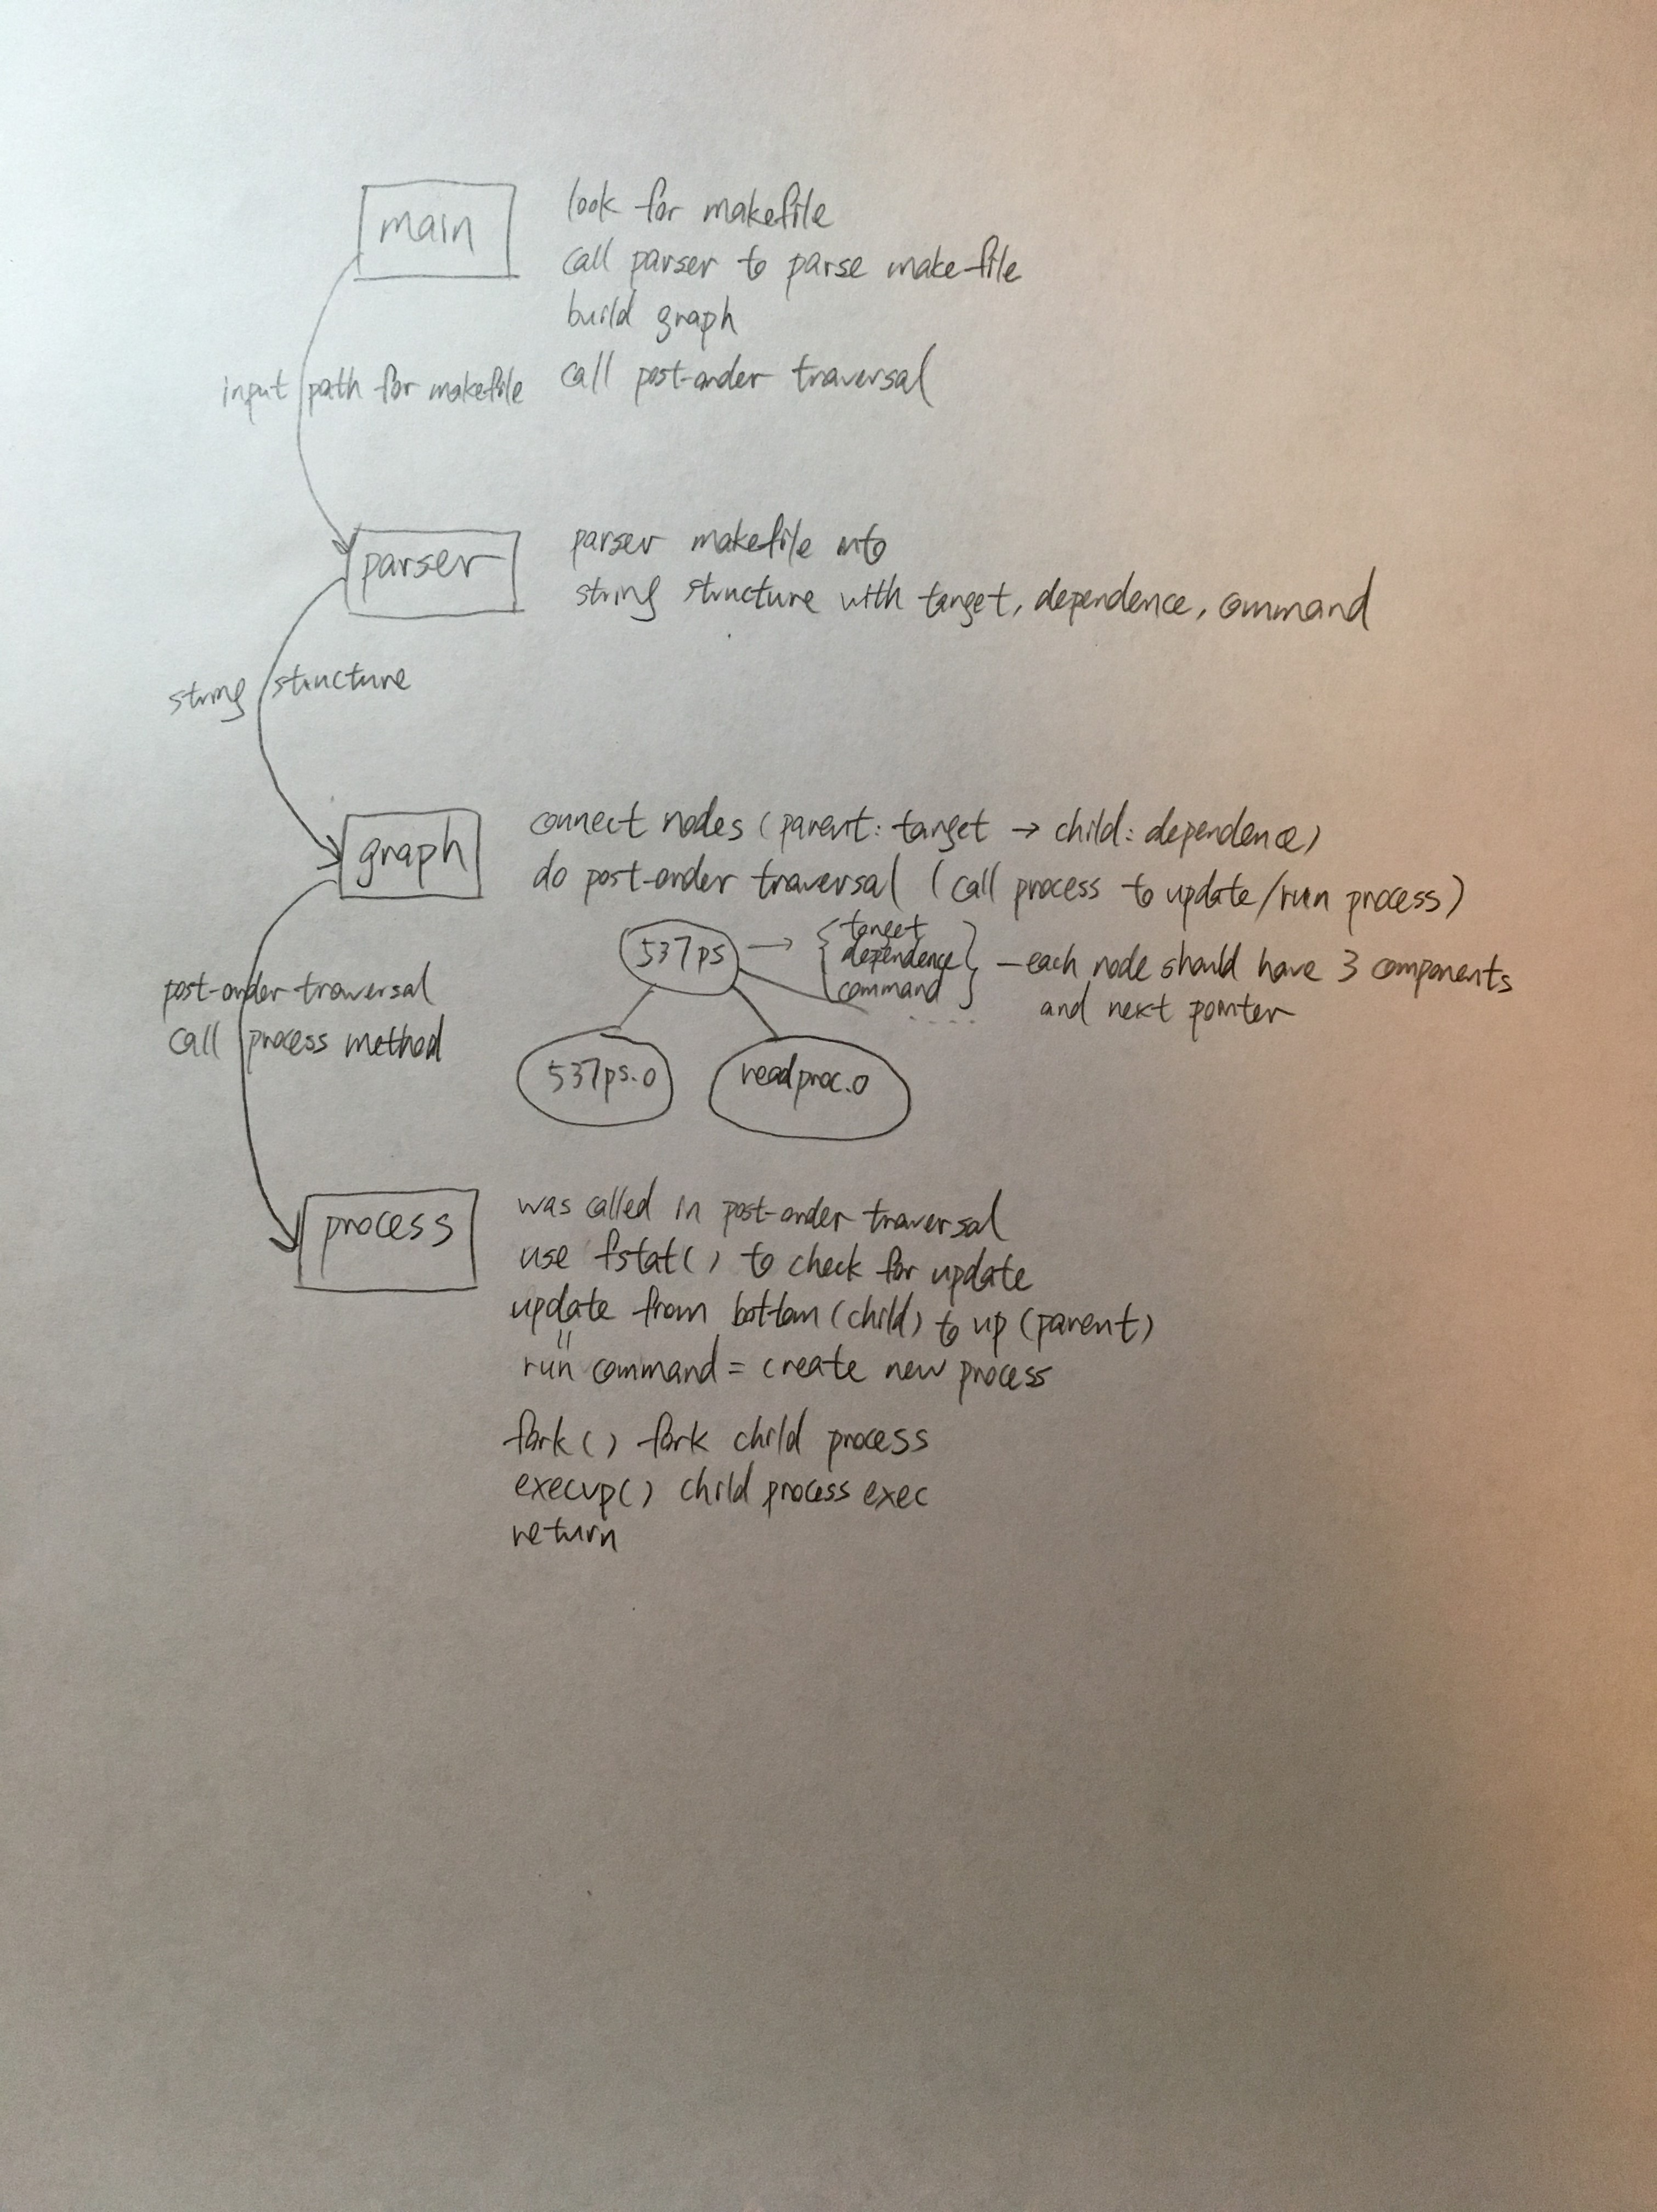 main
look for makefile
call parser to parse makefile
build graph
call post-order traversal
input path for makefile
parser
parser makefile into
string structure with target, dependence, command
string structure
graph
connect nodes (parent: target → child: dependence)
do post-order traversal (call process to update/run process)
537ps → { target
dependence
command } - each node should have 3 components
and next pointer
....
537ps.o readproc.o
post-order traversal
call process method
process
was called in post-order traversal
use fstat() to check for update
update from bottom (child) to up (parent)
run command = create new process
fork() fork child process
execvp() child process exec
return